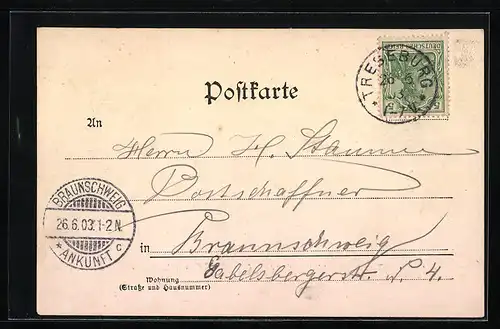 TRESEBURG
26 6
03
1-2N
Postkarte
An
Herrn H. Staumer
Postschaffner
BRAUNSCHWEIG
26.6.03.1-2N.
* ANKUNFT c
in Braunschweig
Gabelsbergerstr. N 4.
Wohnung
(Straße und Hausnummer)